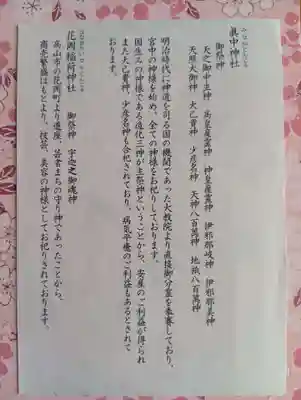 眞中神社
御祭神
天之御中主神 高皇産霊神 神皇産霊神 伊邪那岐神 伊邪那美神
天照大御神 大己貴神 少彦名神 天神八百萬神 地祇八百萬神
明治時代に神道を司る国の機関であった大教院より直接御分霊を奉齋しており、
宮中の神様を始め、全ての神様をお祀りしております。
国生みの神様である造化三神が主祭神ということから、安産のご利益が得られ
また大己貴神、少彦名神も合祀されており、病気平癒のご利益もあるとされて
おります。
花岡稲荷神社 御祭神 宇迦之御魂神
高山市の花岡町より遷座。芸者まちの守り神であったことから、
商売繁盛はもとより、技芸、美容の神様としてお祀りされております。